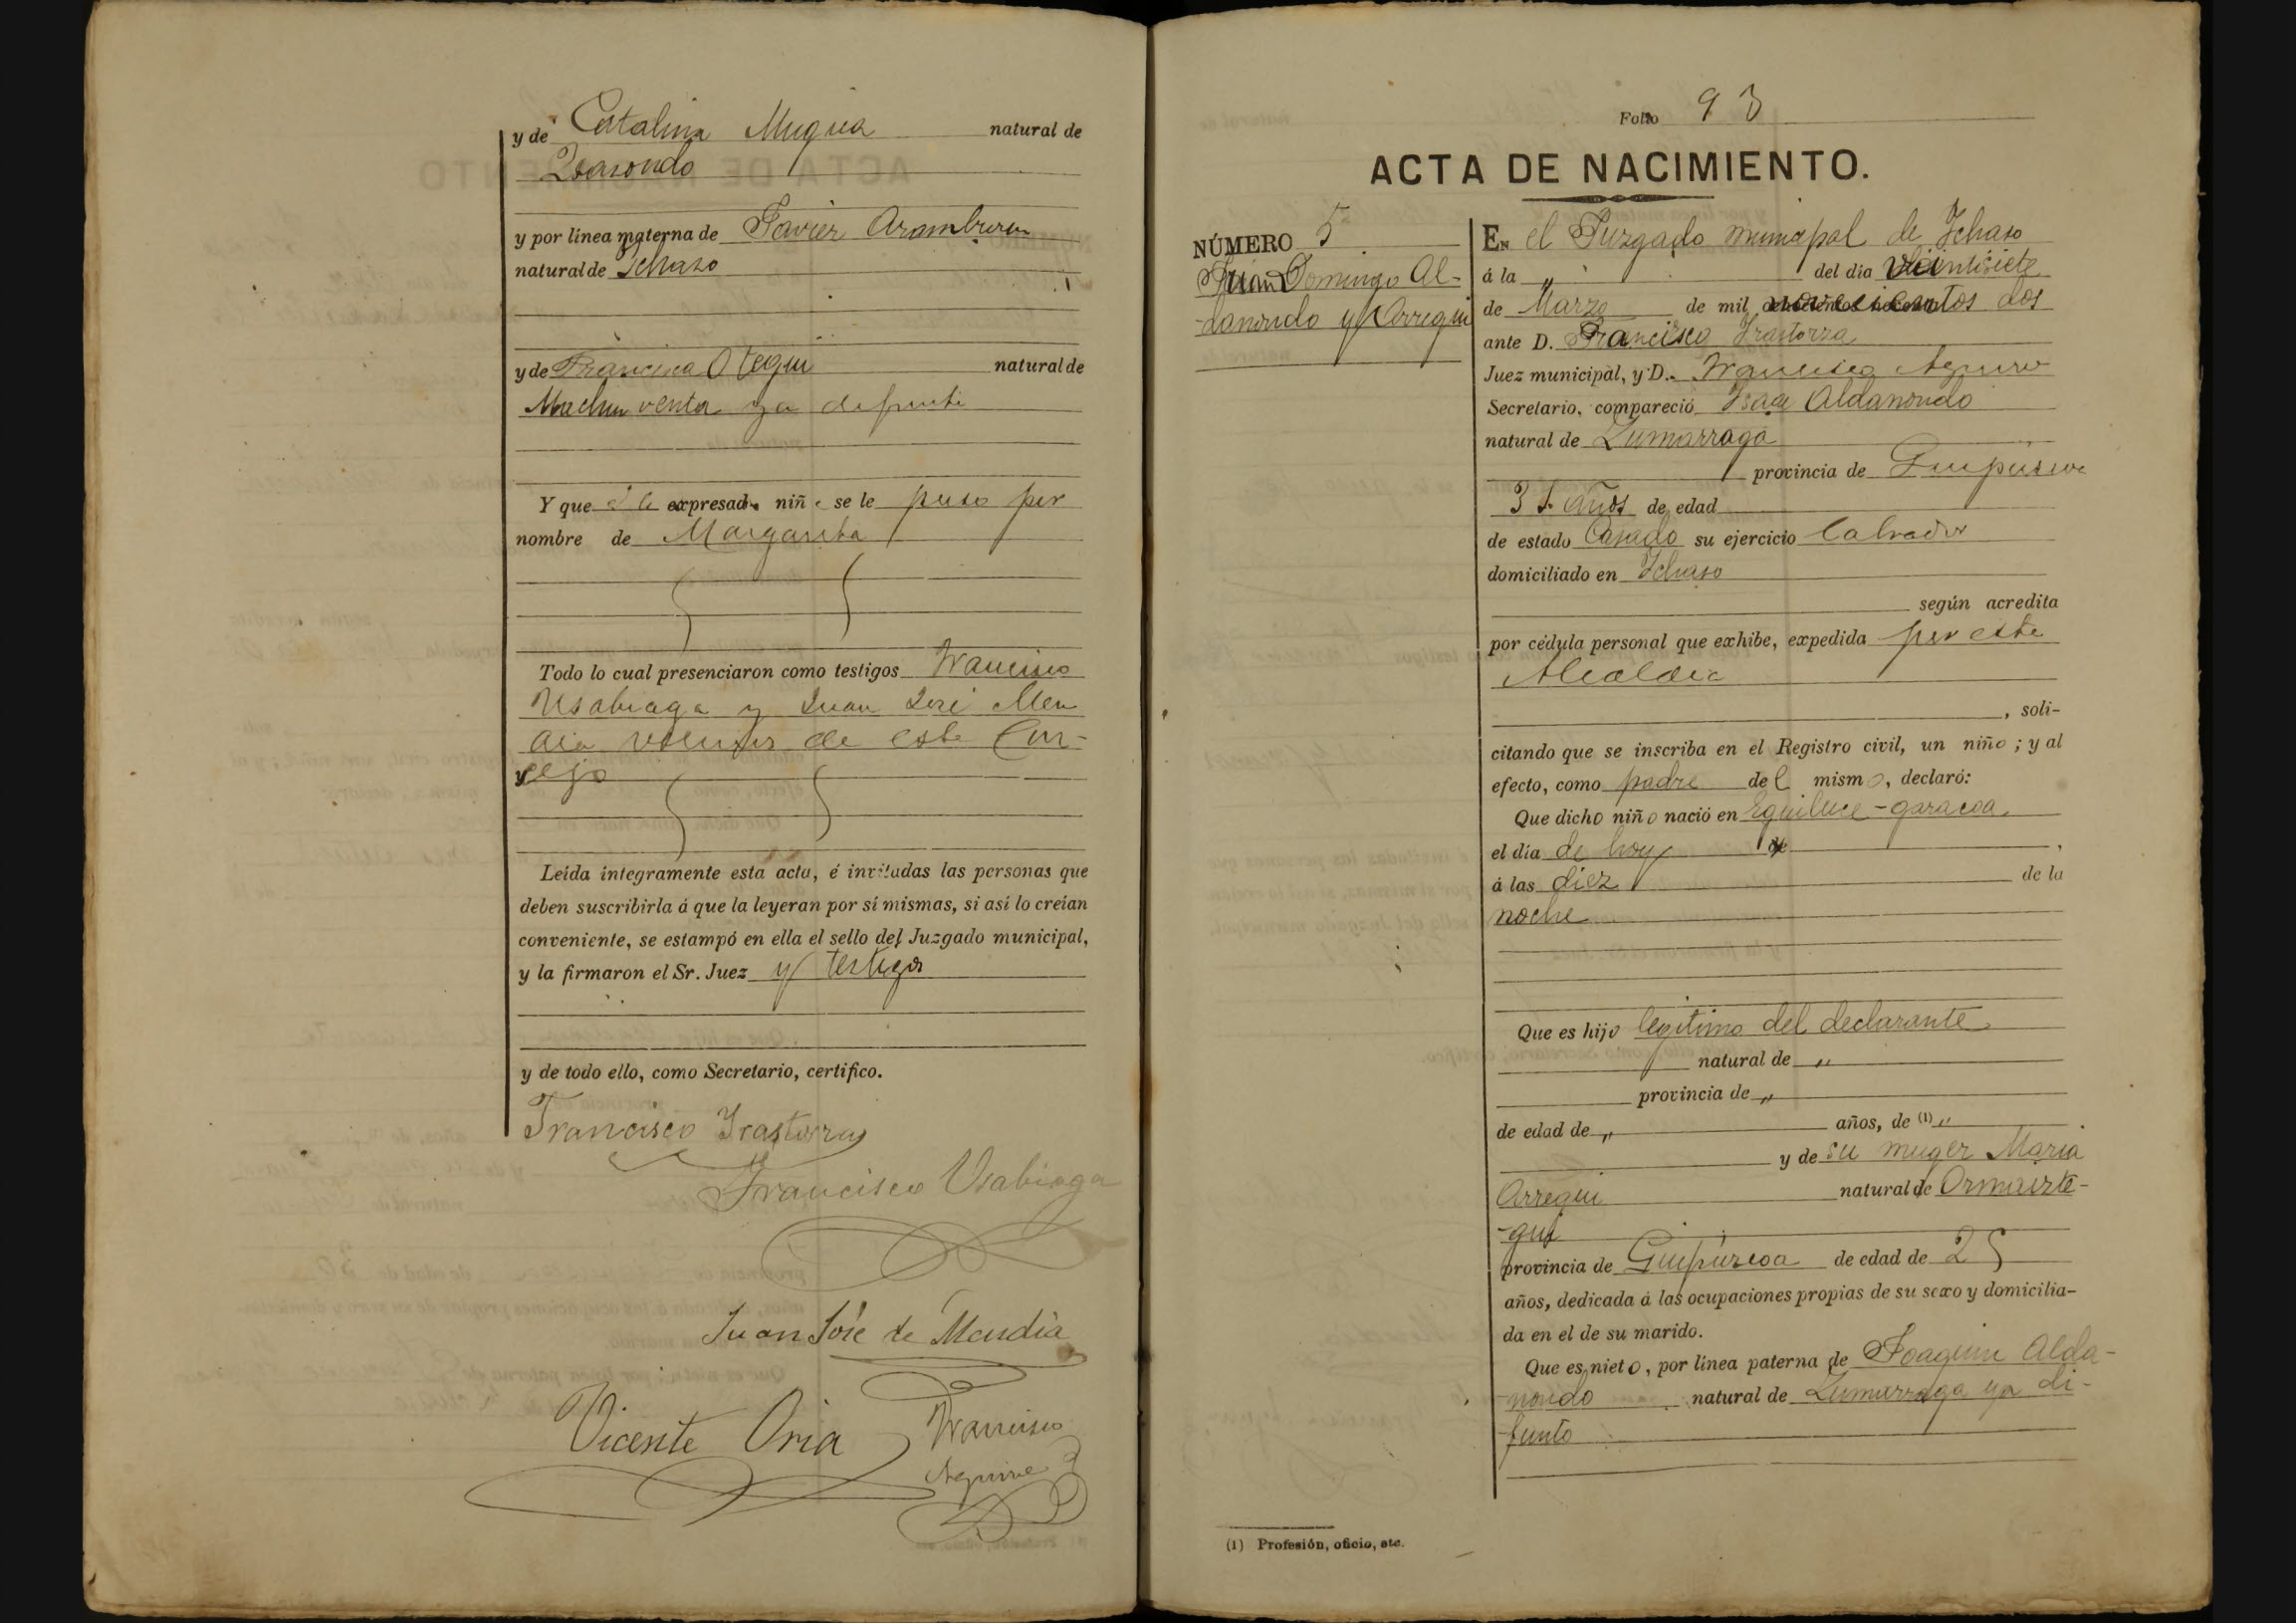 y de Catalina Mugica natural de
Isasondo
y por línea materna de Javier Aramburu
natural de Ichaso
y de Francisca Otegui natural de
Machinventa ya difunta
Y que á la expresada niña se le puso por
nombre de Margarita
Todo lo cual presenciaron como testigos Francisco
Usabiaga y Juan José Men
dia vecinos de este Con-
cejo
Leída íntegramente esta acta, é invitadas las personas que
deben suscribirla á que la leyeran por sí mismas, si así lo creían
conveniente, se estampó en ella el sello del Juzgado municipal,
y la firmaron el Sr. Juez y testigos
y de todo ello, como Secretario, certifico.
Francisco Irastorza
Francisco Usabiaga
Juan José de Mendia
Vicente Oria Francisco
Aguirre
Folio 93
ACTA DE NACIMIENTO.
NÚMERO 5
Juan Domingo Al-
danondo y Arregui
En el Juzgado municipal de Ichaso
á la " del día veintisiete
de Marzo de mil novecientos dos
ante D. Francisco Irastorza
Juez municipal, y D. Francisco Aguirre
Secretario, compareció Isaac Aldanondo
natural de Zumarraga
provincia de Guipúzcoa
años de edad
de estado Casado su ejercicio labrador
domiciliado en Ichaso
según acredita
por cédula personal que exhibe, expedida por esta
Alcaldia
, soli-
citando que se inscriba en el Registro civil, un niño ; y al
efecto, como padre del mismo, declaró:
Que dicho niño nació en Eguiluce-garacoa
el día de hoy de ,
á las diez de la
noche
Que es hijo legitimo del declarante
natural de "
provincia de "
de edad de " años, de (1) "
y de su muger Maria
Arregui natural de Ormaizte-
-gui
provincia de Guipúzcoa de edad de 25
años, dedicada á las ocupaciones propias de su sexo y domicilia-
da en el de su marido.
Que es nieto, por línea paterna de Joaquin Alda-
nondo natural de Zumarraga ya di-
funto
(1) Profesión, oficio, etc.